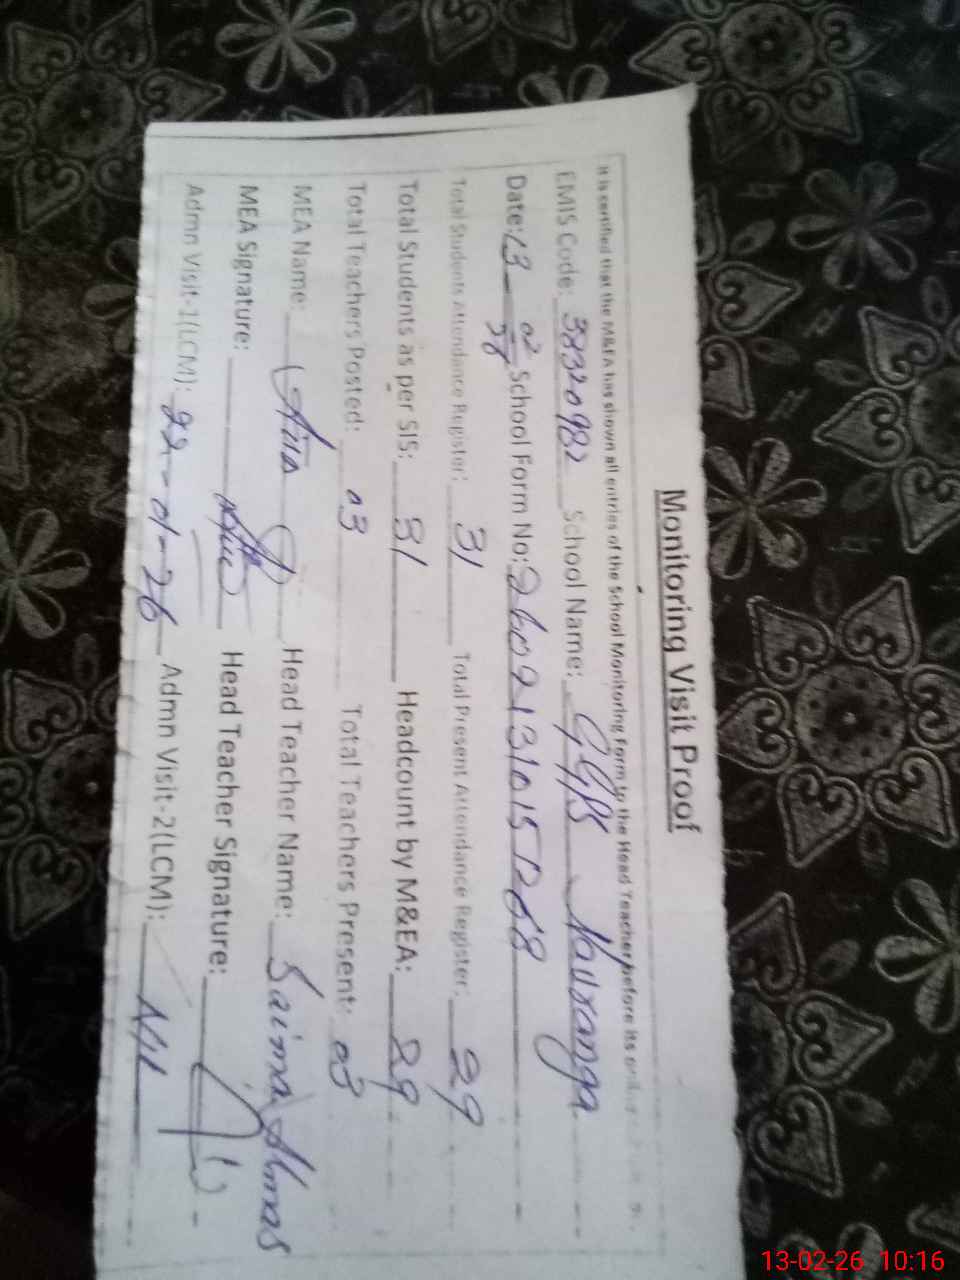 Monitoring Visit Proof
It is certified that the M&EA has shown all entries of the School Monitoring Form to the Head Teacher before its
EMIS Code: 38320982 School Name: GGPS Nauranga
Date: 13 02 26 School Form No: 26029131015
Total Students Attendance Register: 31 Total Present Attendance Register: 29
Total Students as per SIS: 31 Headcount by M&EA: 29
Total Teachers Posted: 03 Total Teachers Present: 03
MEA Name: Head Teacher Name: Saima Almas
MEA Signature: Head Teacher Signature:
Admn Visit-1(LCM): 22-1-26 Admn Visit-2(LCM): Nil
13-02-26 10:16